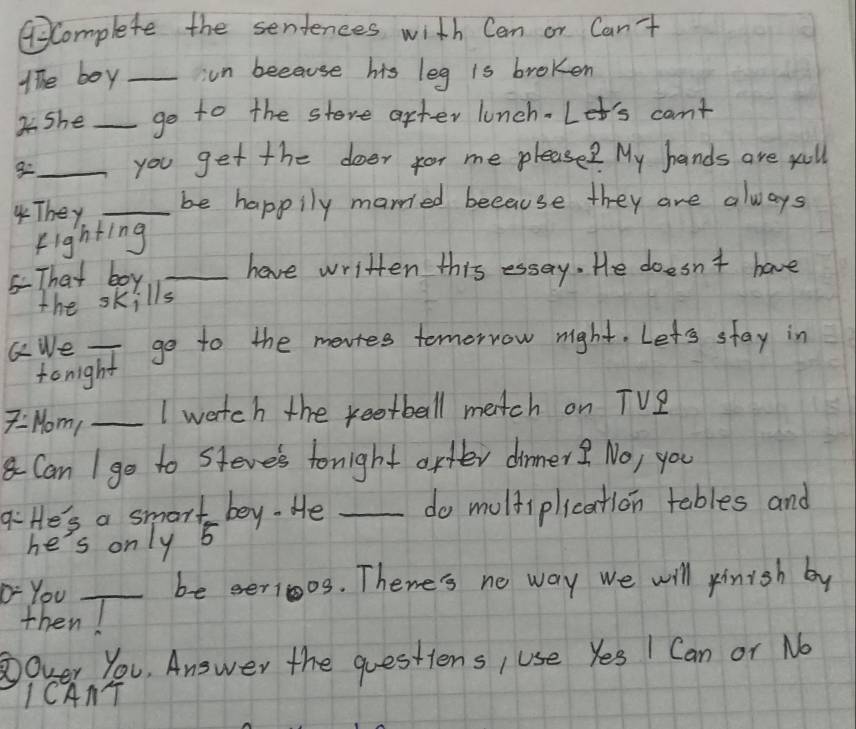 1-Complete the sentences with Can or Can't
1 The boy ___ run because his leg is broken
2- She ___ go to the store after lunch. Let's cant
3- ___ you get the door for me please? My hands are full
4- They ___ be happily married because they are always
fighting
5- That boy ___ have written this essay. He doesn't have
the skills
6- We ___ go to the movies tomorrow night. Let's stay in
tonight
7- Mom, ___ I watch the football match on TV?
8- Can I go to Steve's tonight after dinner? No, you
9- He's a smart boy. He ___ do multiplication tables and
he's only 5
10- You ___ be serious. There's no way we will finish by
then!
2 Over You. Answer the questions, use Yes I Can or No
I CAN'T